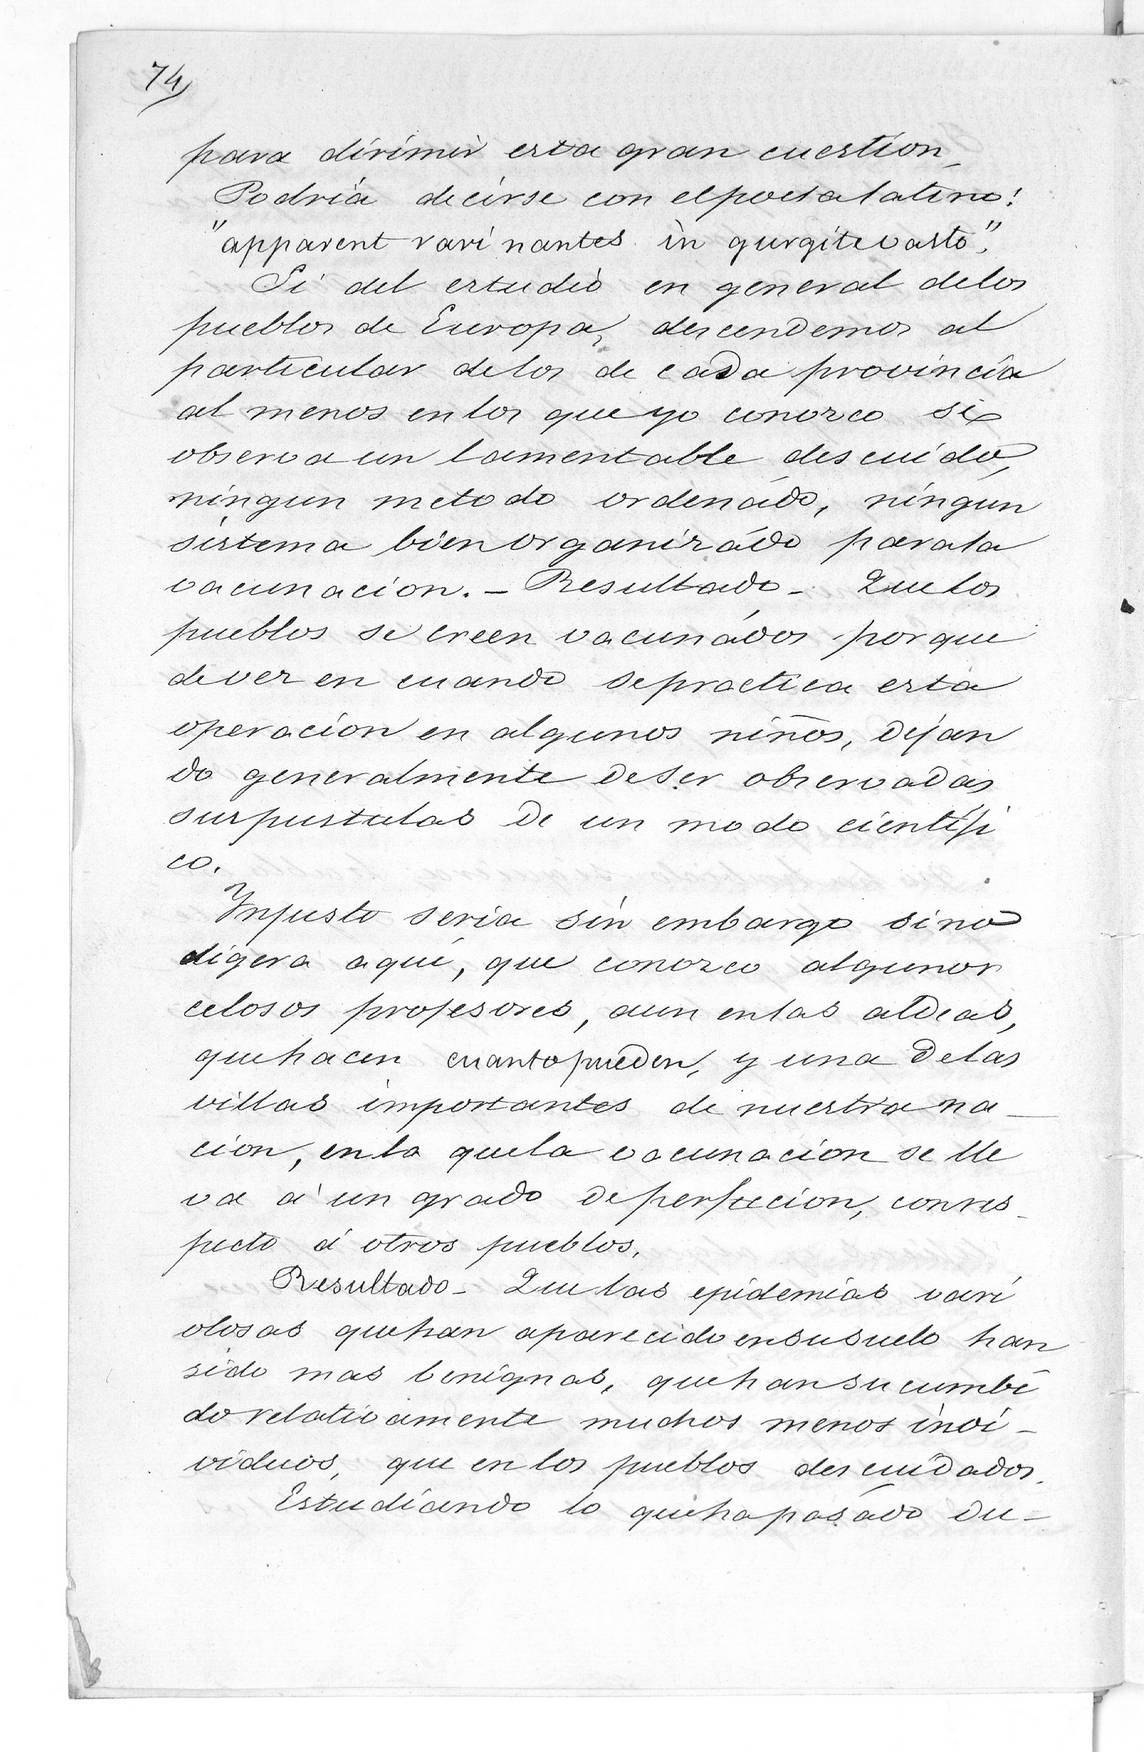 74
para dirimir esta gran cuestion.
Podría decirse con el poeta latino:
"apparent rari nantes in gurgite vasto".
Si del estudio en general de los
pueblos de Europa, descendemos al
particular de los de cada provincia
al menos en los que yo conozco se
observa un lamentable descuido,
ningun metodo ordenádo, ningun
sistema bien organizádo para la
vacunacion. - Resultado - Que los
pueblos se creen vacunádos porque
de vez en cuando se practica esta
operacion en algunos niños, dejan
do generalmente de ser observadas
sus pustulas de un modo científi
co.
Injusto seria sin embargo si no
digera aqui, que conozco algunos
celosos profesores, aun en las aldeas,
que hacen cuanto pueden, y una de las
villas importantes de nuestra na-
cion, en la que la vacunacion se lle
va á un grado de perfeccion, con res-
pecto á otros pueblos.
Resultado - Que las epidemias vari
olosas que han aparecido en su suelo han
sido mas benignas, que han sucumbi
do relativamente muchos menos indi-
viduos, que en los pueblos descuidados.
Estudiando lo que ha pasádo du-